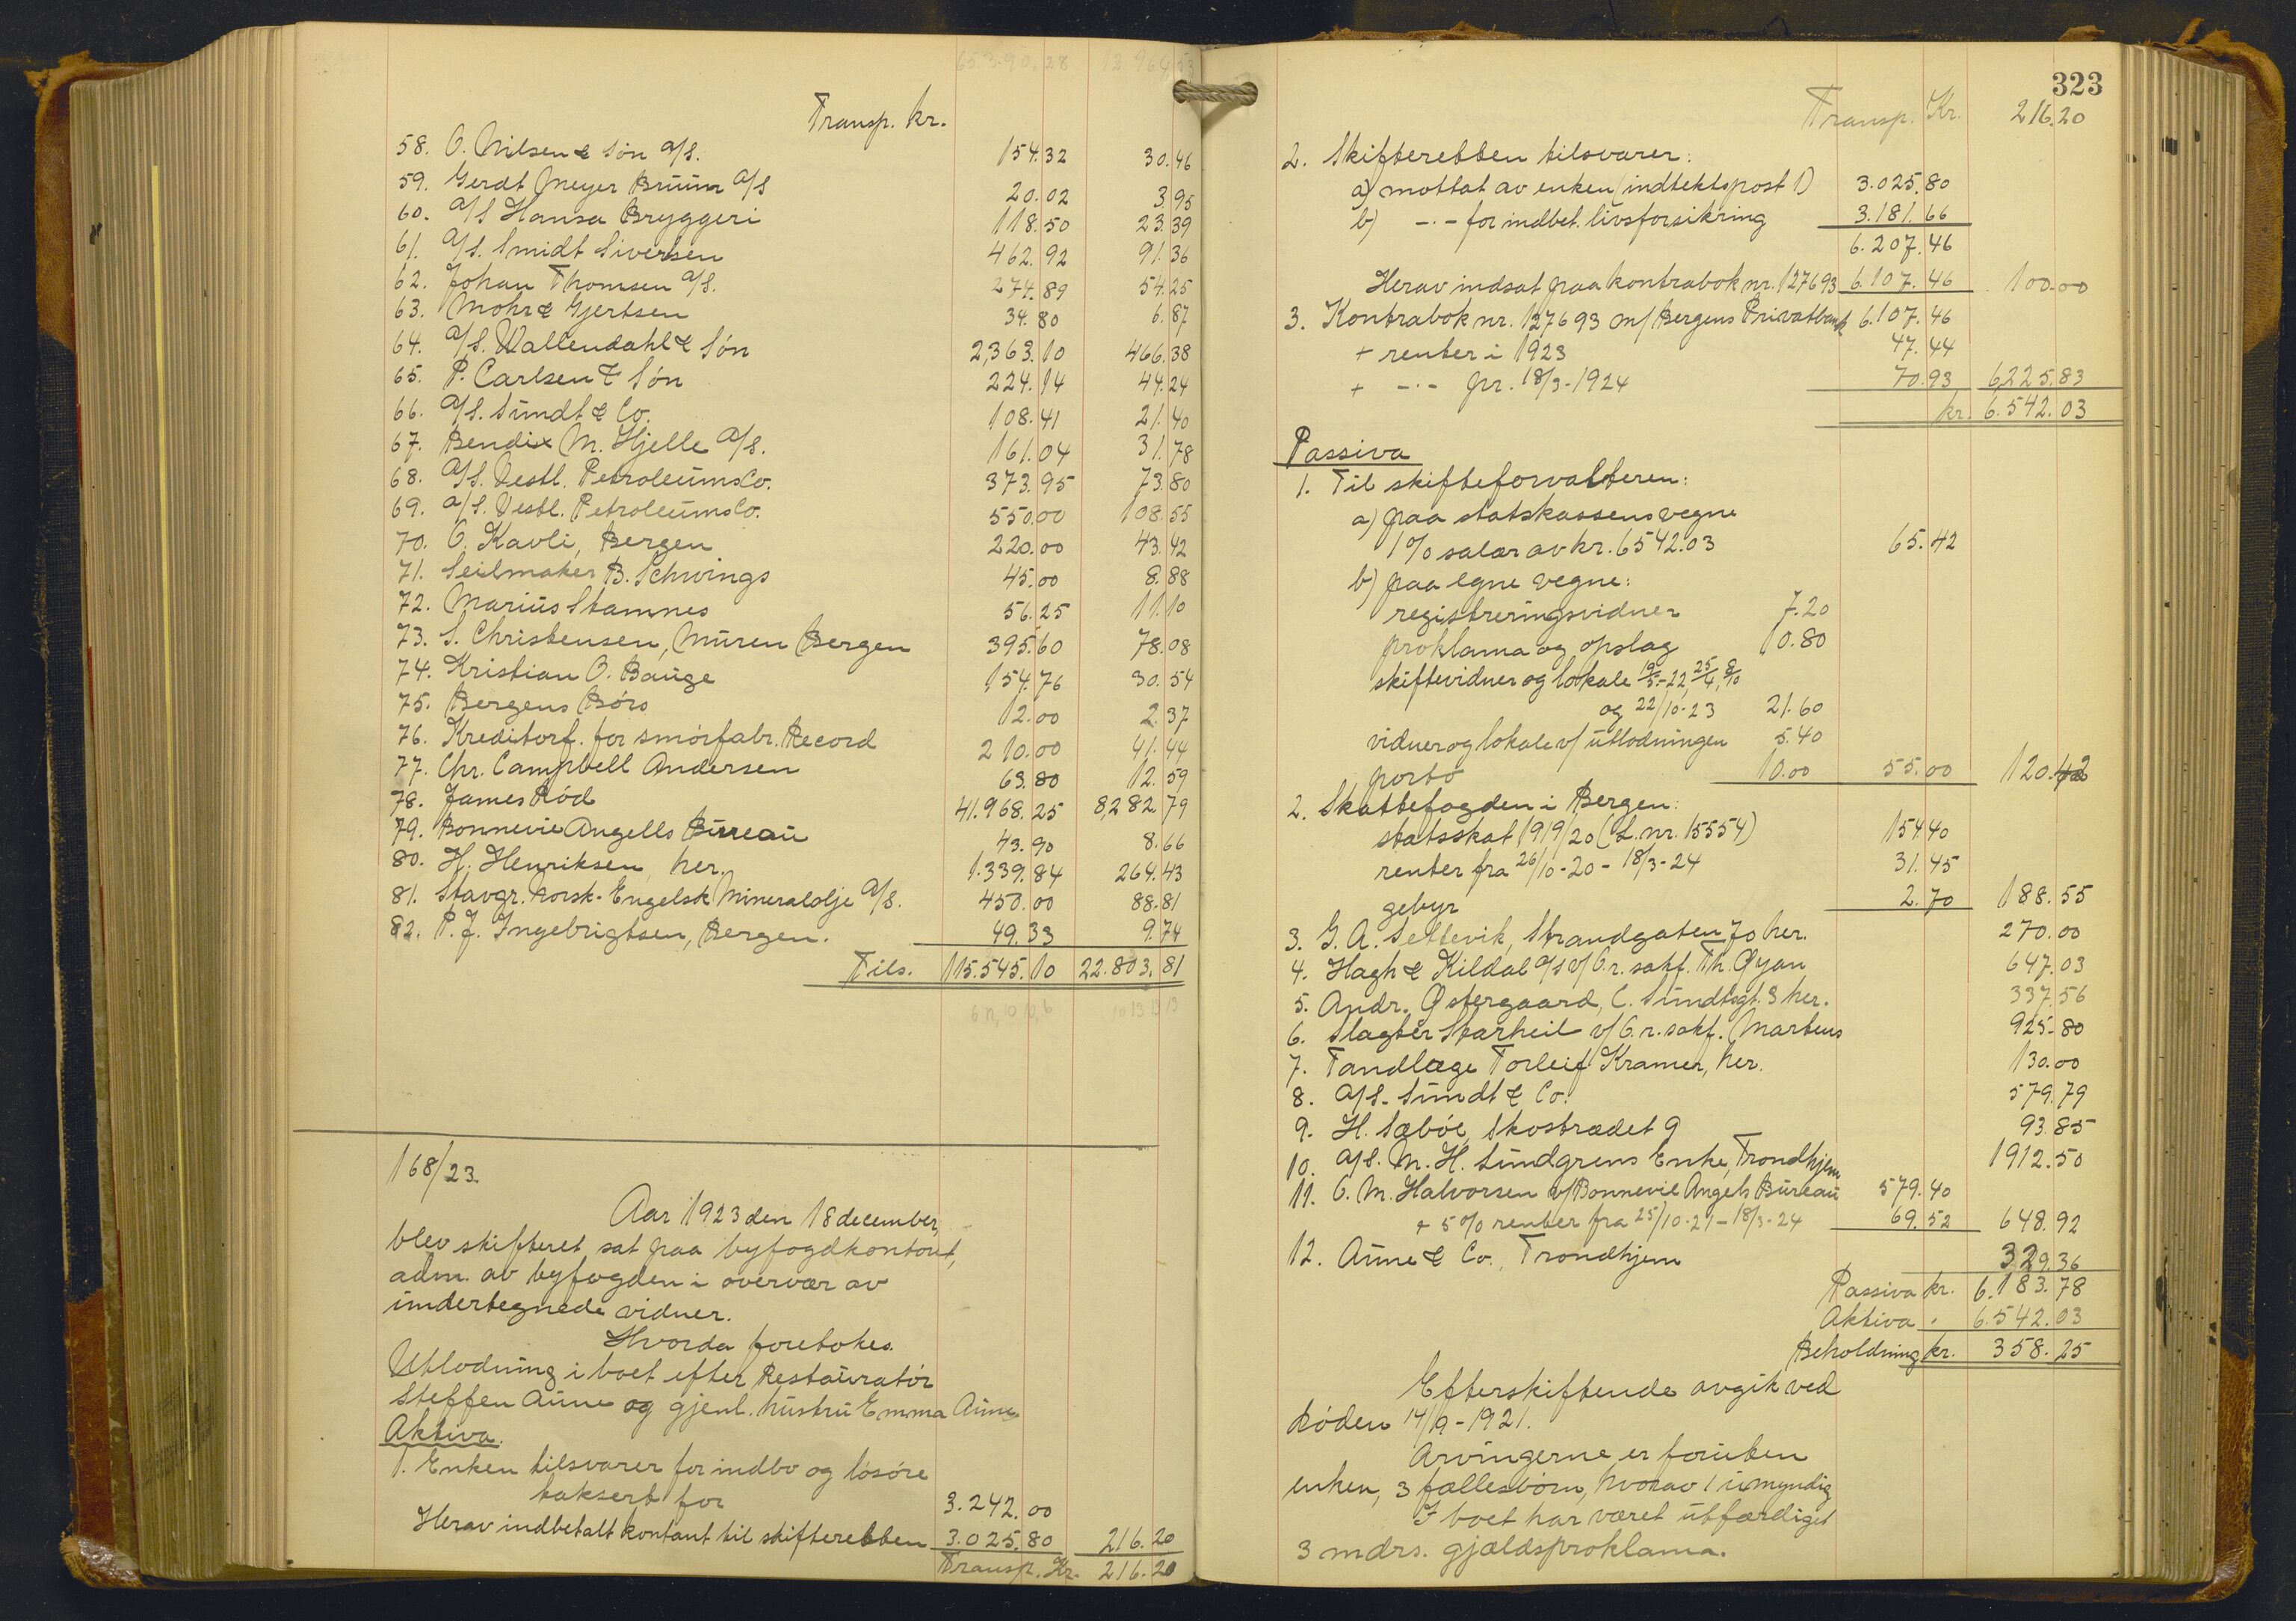 Transp. kr.
58. O. Nilsen & Søn a/s. 154.32 30.46
59. Gerdt Meyer Bruun a/s 20.02 3.95
60. a/s Hansa Bryggeri 118.50 23.39
61. a/s. Smidt Sivertsen 462.92 91.36
62. Johan Thomsen a/s. 274.89 54.25
63. Mohr & Gjertsen 34.80 6.87
64. a/s. Wallendahl & Søn 2,363.10 466.38
65. P. Carlsen & Søn 224.14 44.24
66. a/s. Sundt & Co. 108.41 21.40
67. Bendix M. Hjelle a/s. 161.04 31.78
68. a/s. Vestl. PetroleumsCo. 373.95 73.80
69. a/s. Vestl. PetroleumsCo. 550.00 108.55
70. O. Kavli, Bergen 220.00 43.42
71. Seilmaker B. Schwings 45.00 8.88
72. Marius Stamnes 56.25 11.10
73. S. Christensen, Muren Bergen 395.60 78.08
74. Kristian O. Bauge 154.76 30.54
75. Bergens Børs 12.00 2.37
76. Kreditorf. for smørfabr. Record 210.00 41.44
77. Chr. Campbell Andersen 63.80 12.59
78. James Rød 41.968.25 8,282.79
79. Bonnevie Angells Bureau 43.90 8.66
80. H. Henriksen, her. 1.339.84 264.43
81. Stavgr. Norsk-Engelsk Mineralolje a/s. 450.00 88.81
82. P. J. Ingebrigtsen, Bergen. 49.33 9.74
Tils. 115.545.10 22.803.81
168/23.
Aar 1923 den 18 december,
blev skifteret sat paa byfogdkontoret,
adm. av byfogden i overvær av
undertegnede vidner.
Hvorda foretokes.
Utlodning i boet efter Restauratør
Steffen Aune og gjenl. hustru Emma Aune
Aktiva.
1. Enken tilsvarer for indbo og løsøre
taksert for 3.242.00
Herav indbetalt kontant til skifteretten 3.025.80 216.20
Transp. Kr. 216.20
323
Transp. Kr. 216.20
2. Skifteretten tilsvarer:
a) mottat av enken (indtektspost 1) 3.025.80
b) -·- for indbet. livsforsikring 3.181.66
6.207.46
Herav indsat paa kontrabok nr. 127693 6.107.46 100.00
3. Kontrabok nr. 127693 m/ Bergens Privatbank 6.107.46
+ renter i 1923 47.44
+ -·- pr. 18/3-1924 70.93 6,225.83
kr. 6.542.03
Passiva
1. Til skifteforvalteren:
a) paa statskassens vegne
1% salær av kr. 6542.03 65.42
b) paa egne vegne:
registreringsvidner 7.20
proklama og opslag 10.80
skiftevidner og lokale 19/5-22, 25/4, 8/10
og 22/10-23 21.60
vidner og lokale v/ utlodningen 5.40
porto 10.00 55.00 120.42
2. Skattefogden i Bergen:
statsskat 1919/20 (L. nr. 15554) 154.40
renter fra 26/10-20 - 18/3-24 31.45
gebyr 2.70 188.55
3. G. A. Settevik, Strandgaten 70 her. 270.00
4. Hagh & Kildal a/s v/ O.r. sakf. Th. Øyan 647.03
5. Andr. Østergaard, C. Sundtsgt. 3 her. 337.56
6. Slagter Starheil v/ O.r. sakf. Martens 925.80
7. Tandlæge Torleif Kramer, her. 130.00
8. a/s. Sundt & Co. 579.79
9. H. Sæbøe, Skostrædet 9 93.85
10. a/s. M. H. Lundgrens Enke, Trondhjem 1912.50
11. O. M. Halvorsen v/ Bonnevie Angels Bureau 579.40
+ 5% renter fra 25/10-21 - 18/3-24 69.52 648.92
12. Aune & Co., Trondhjem 329.36
Passiva kr. 6.183.78
Aktiva " 6.542.03
Beholdning kr. 358.25
Efterskiftende avgik ved
døden 14/9-1921.
Arvingerne er foruten
enken, 3 fællesbørn, hvorav 1 umyndig
I boet har været utfærdiget
3 mdrs. gjældsproklama.